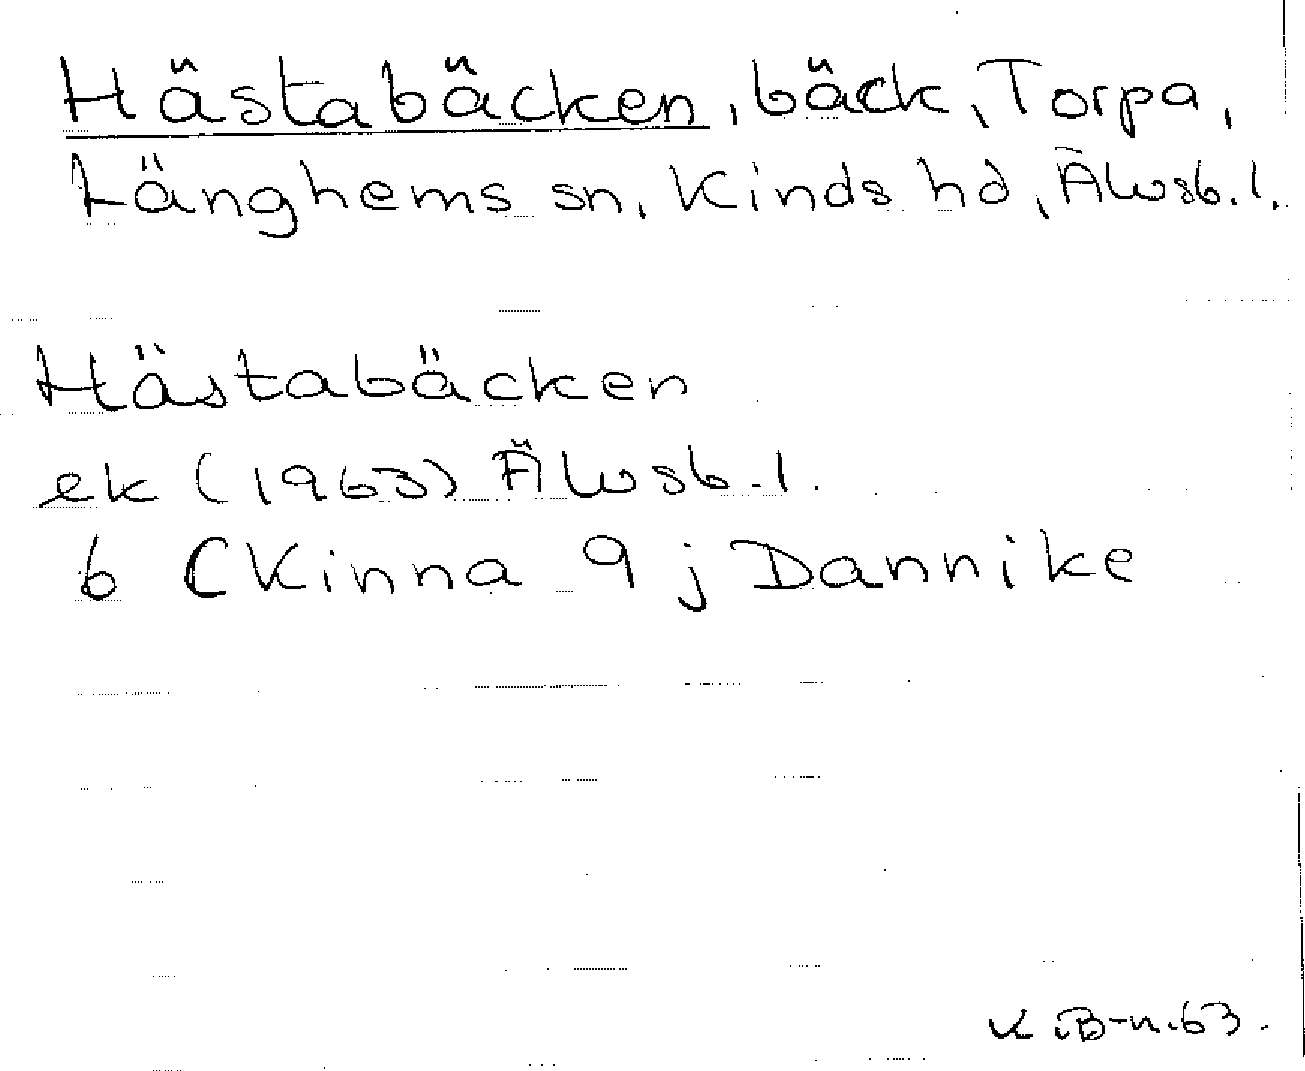 Hästabäcken, bäck, Torpa,
Länghems sn, Kinds hd, Älvsb. l.
Hästabäcken
ek (1963) Älvsb. l.
6 C Kinna 9 j Dannike
K.B-n.63.